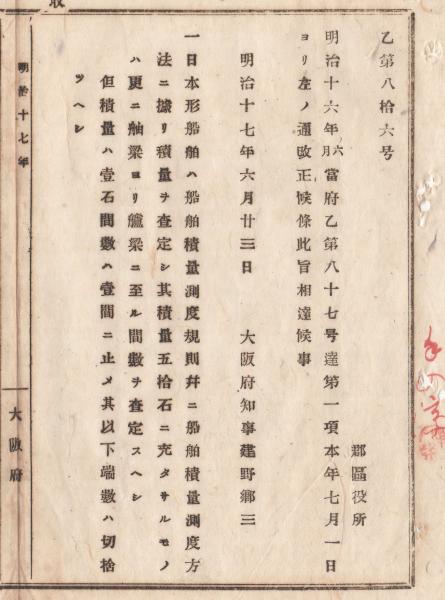 乙第八拾六号
郡區役所
明治十六年六月當府乙第八十七号達第一項本年七月一日
ヨリ左ノ通改正候條此旨相達候事
明治十七年六月廿三日　大阪府知事建野郷三
一日本形船舶ハ船舶積量測度規則幷ニ船舶積量測度方
法ニ據リ積量ヲ査定シ其積量五拾石ニ充タサルモノ
ハ更ニ舳梁ヨリ艫梁ニ至ル間數ヲ査定スヘシ
但積量ハ壹石間數ハ壹間ニ止メ其以下端數ハ切捨
ツヘシ
明治十七年
大阪府